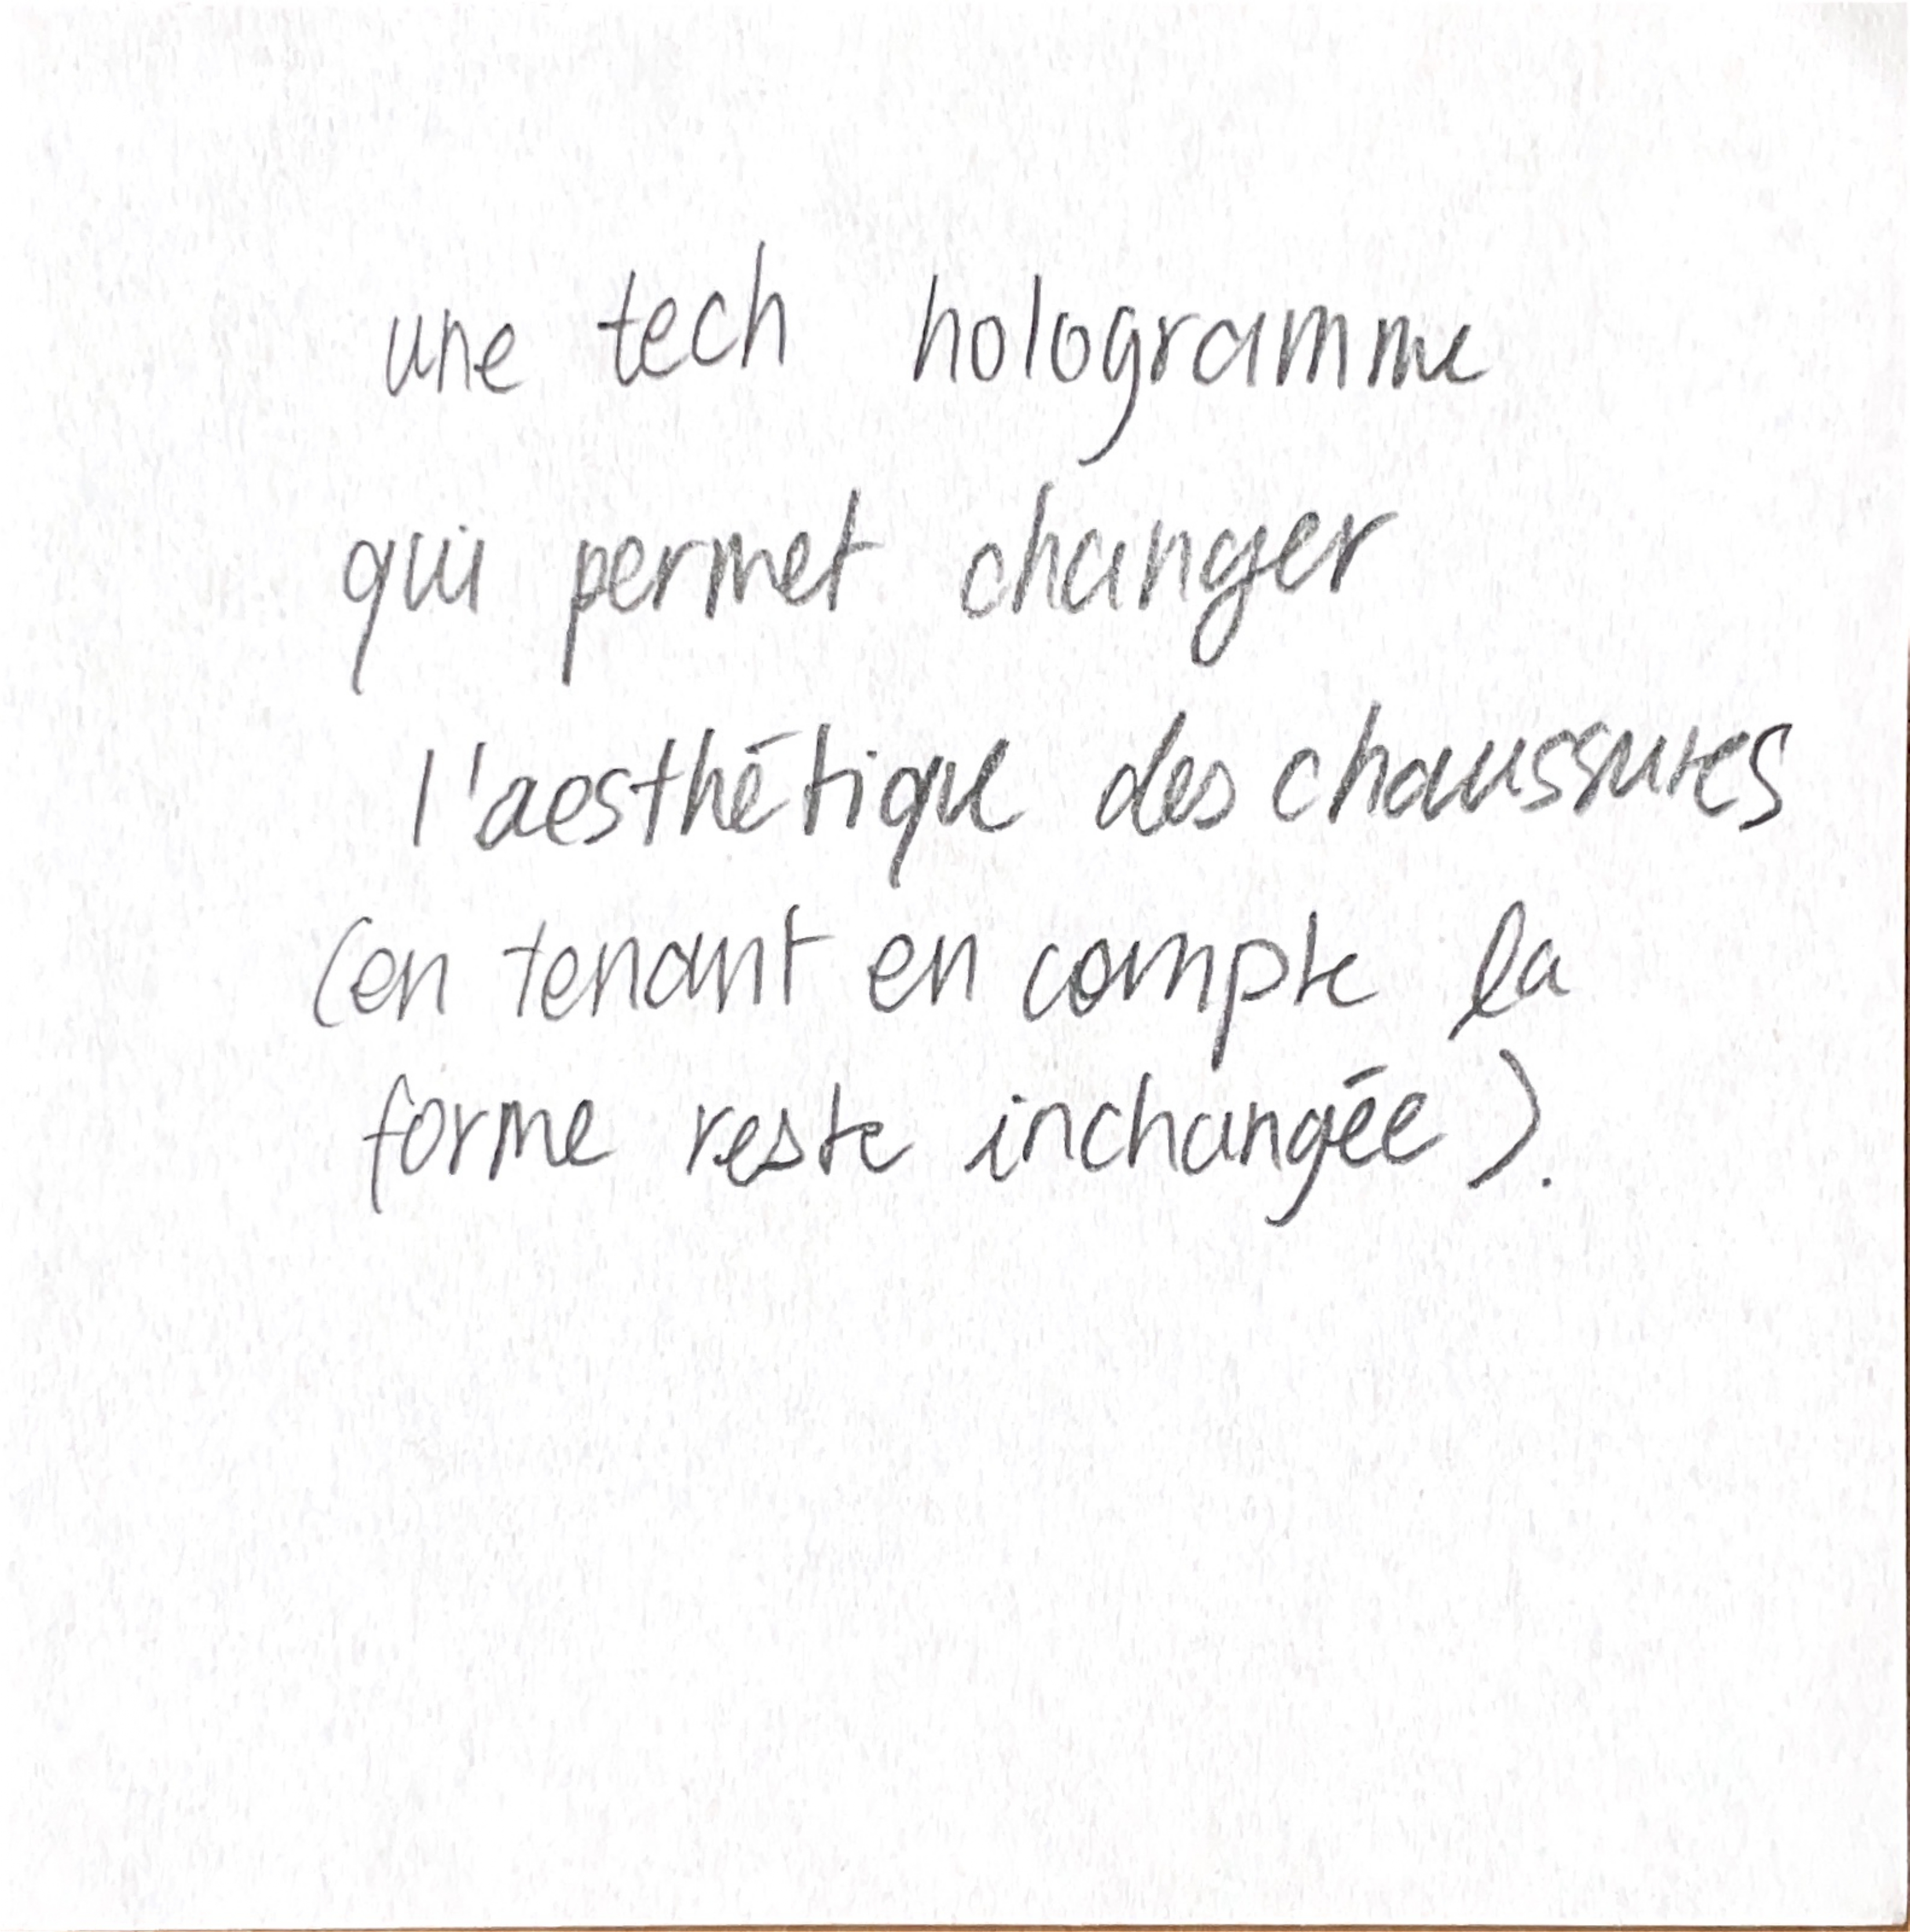 une tech hologramme
qui permet changer
l'aesthétique des chaussures
(en tenant en compte la
forme reste inchangée).